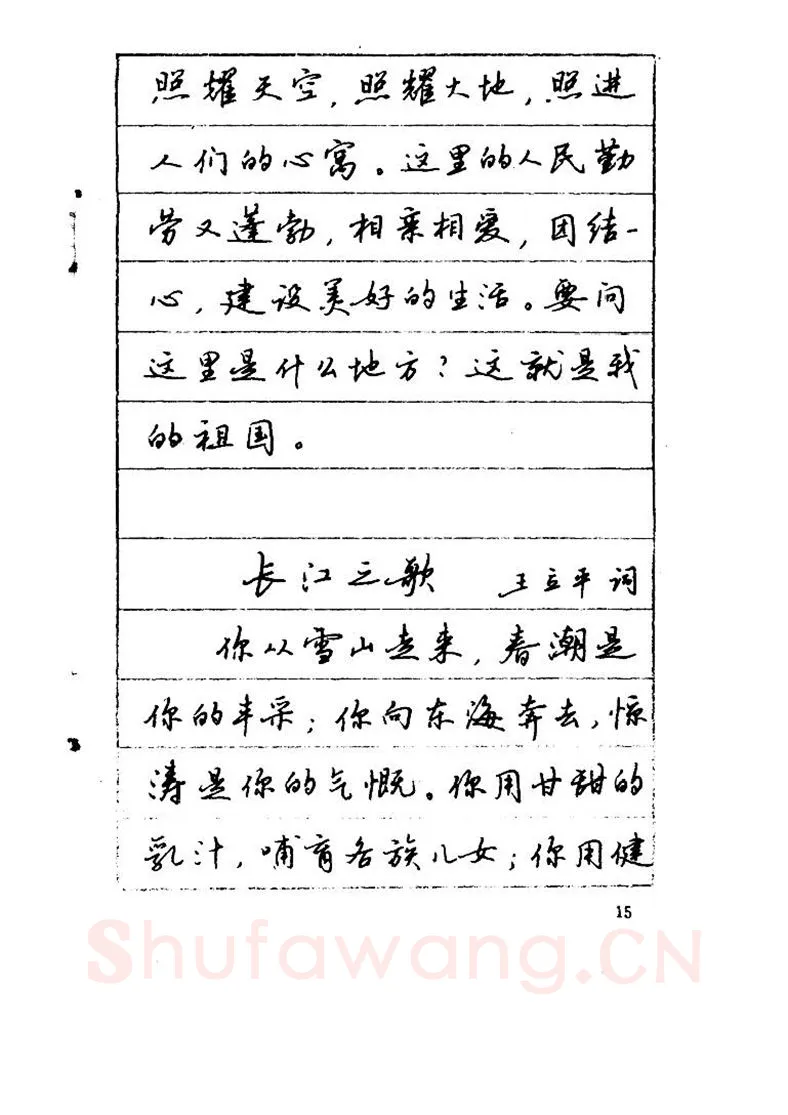 照耀天空，照耀大地，照进
人们的心窝。这里的人民勤
劳又蓬勃，相亲相爱，团结一
心，建设美好的生活。要问
这里是什么地方？这就是我
的祖国。
长江之歌 王立平 词
你从雪山走来，春潮是
你的丰采；你向东海奔去，惊
涛是你的气慨。你用甘甜的
乳汁，哺育各族儿女；你用健
15
Shufawang.CN